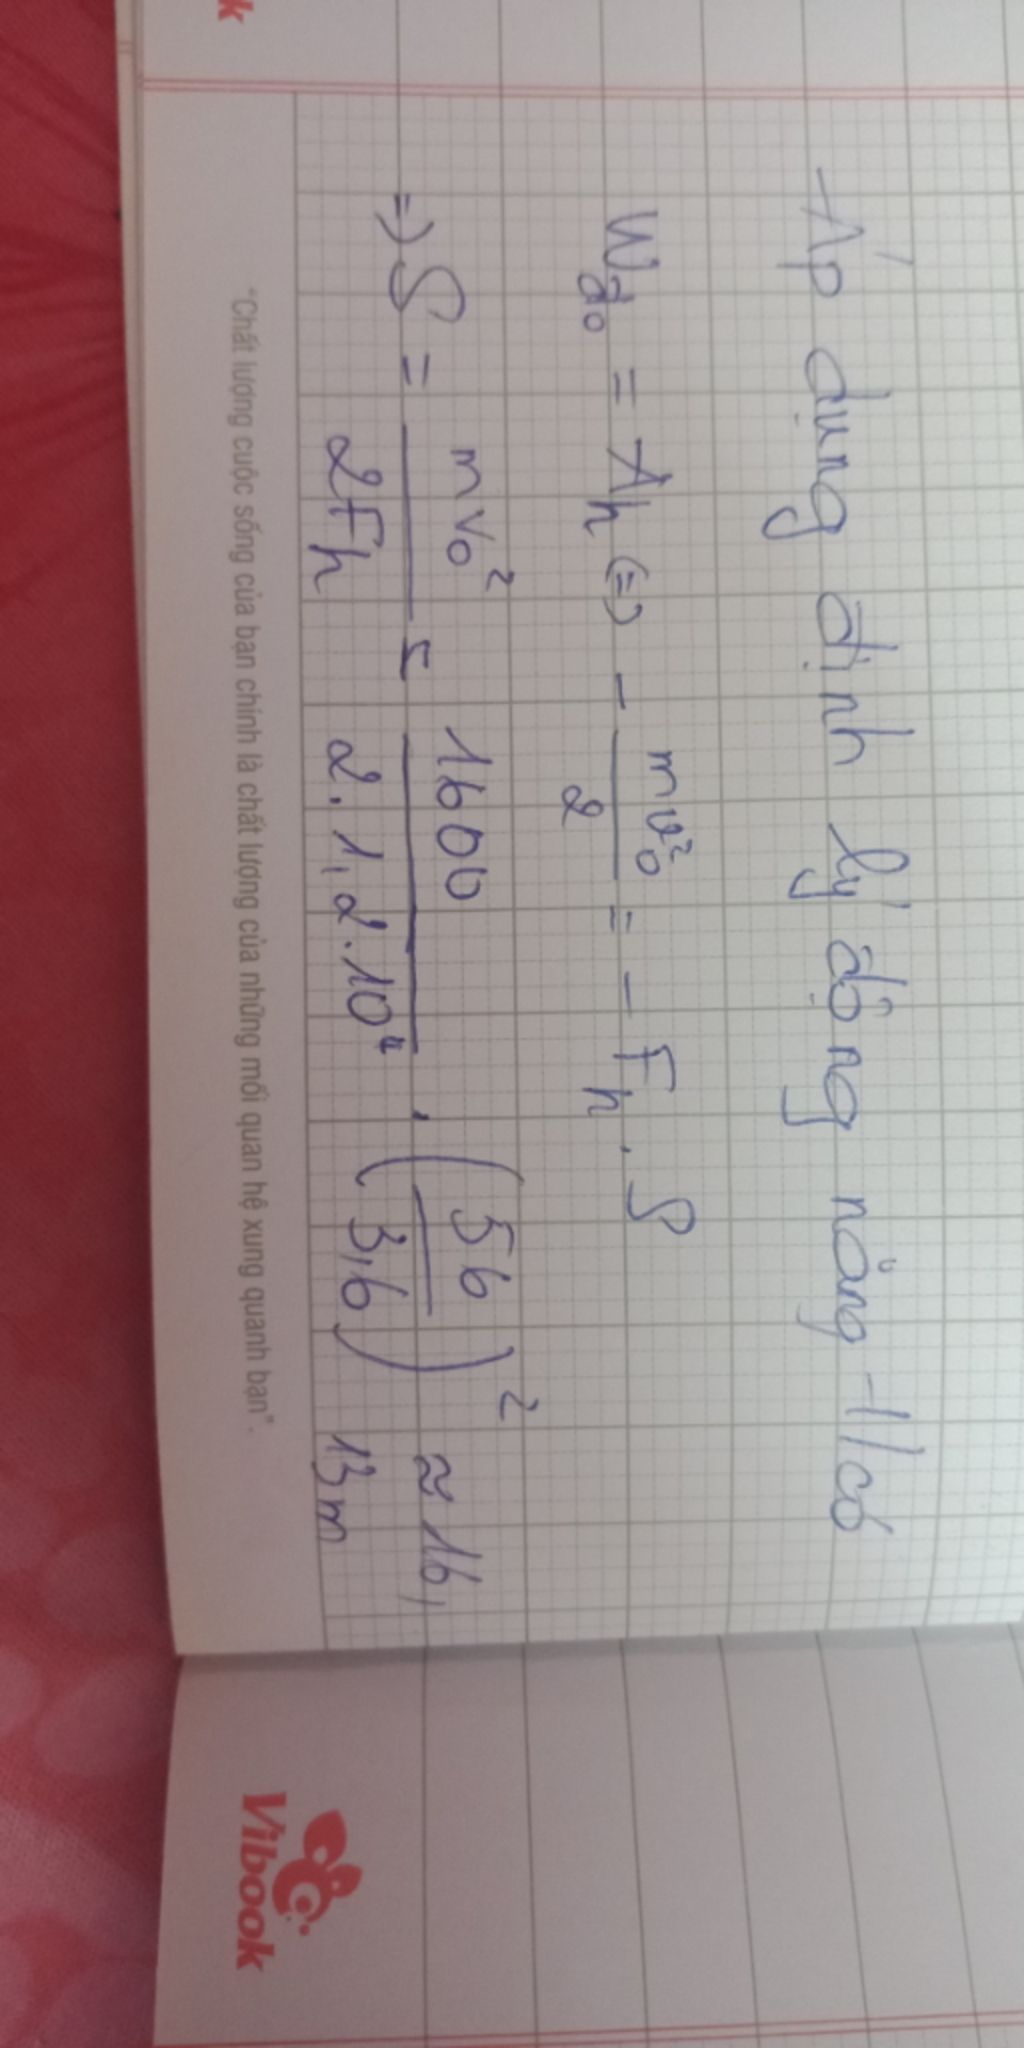 k
Áp dụng định lý động năng ta có
Wđ₀ = Aₕ (=) - mv₀²/2 = - Fₕ . S
=) S = mv₀²/2Fₕ = 1600/2.1,2.10⁴ . (56/3,6)² ≈ 16,
13m
"Chất lượng cuộc sống của bạn chính là chất lượng của những mối quan hệ xung quanh bạn".
Vibook